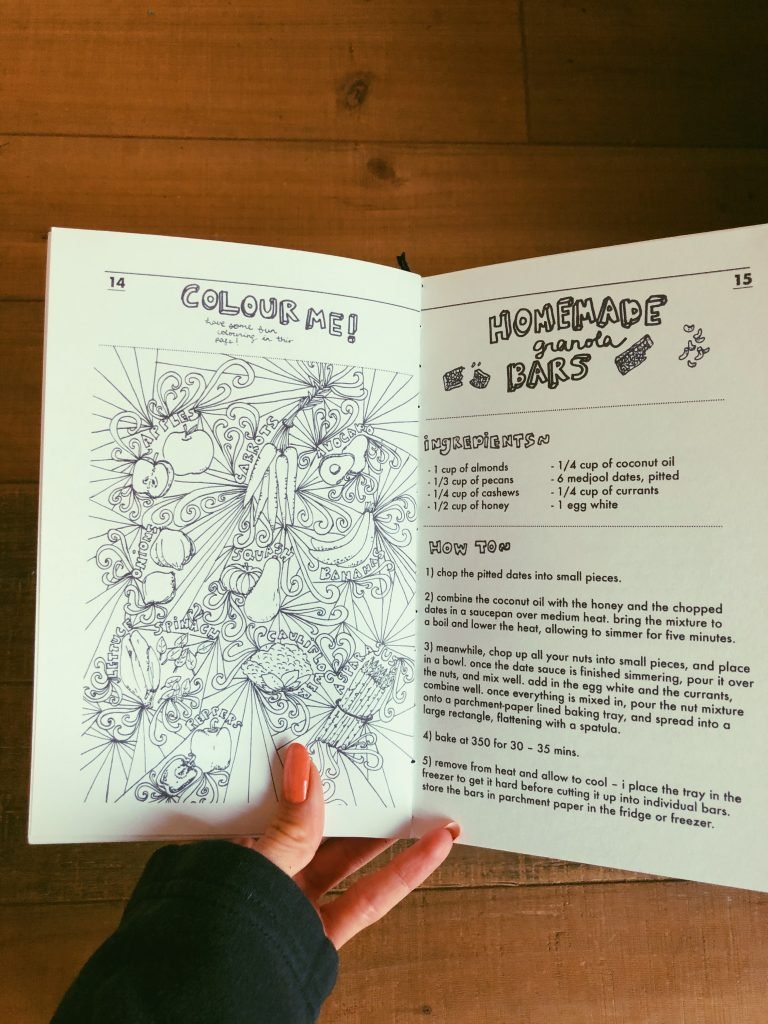 14
COLOUR ME!
have some fun
colouring in this
page!
APPLES
CARROTS
AVOCADO
ONIONS
SQUASH
BANANAS
LETTUCE
SPINACH
CAULIFLOWER
PEPPERS
15
HOMEMADE
granola
BARS
INGREDIENTS~
- 1 cup of almonds
- 1/3 cup of pecans
- 1/4 cup of cashews
- 1/2 cup of honey
- 1/4 cup of coconut oil
- 6 medjool dates, pitted
- 1/4 cup of currants
- 1 egg white
HOW TO~
1) chop the pitted dates into small pieces.
2) combine the coconut oil with the honey and the chopped
dates in a saucepan over medium heat. bring the mixture to
a boil and lower the heat, allowing to simmer for five minutes.
3) meanwhile, chop up all your nuts into small pieces, and place
in a bowl. once the date sauce is finished simmering, pour it over
the nuts, and mix well. add in the egg white and the currants,
combine well. once everything is mixed in, pour the nut mixture
onto a parchment-paper lined baking tray, and spread into a
large rectangle, flattening with a spatula.
4) bake at 350 for 30 – 35 mins.
5) remove from heat and allow to cool – i place the tray in the
freezer to get it hard before cutting it up into individual bars.
store the bars in parchment paper in the fridge or freezer.